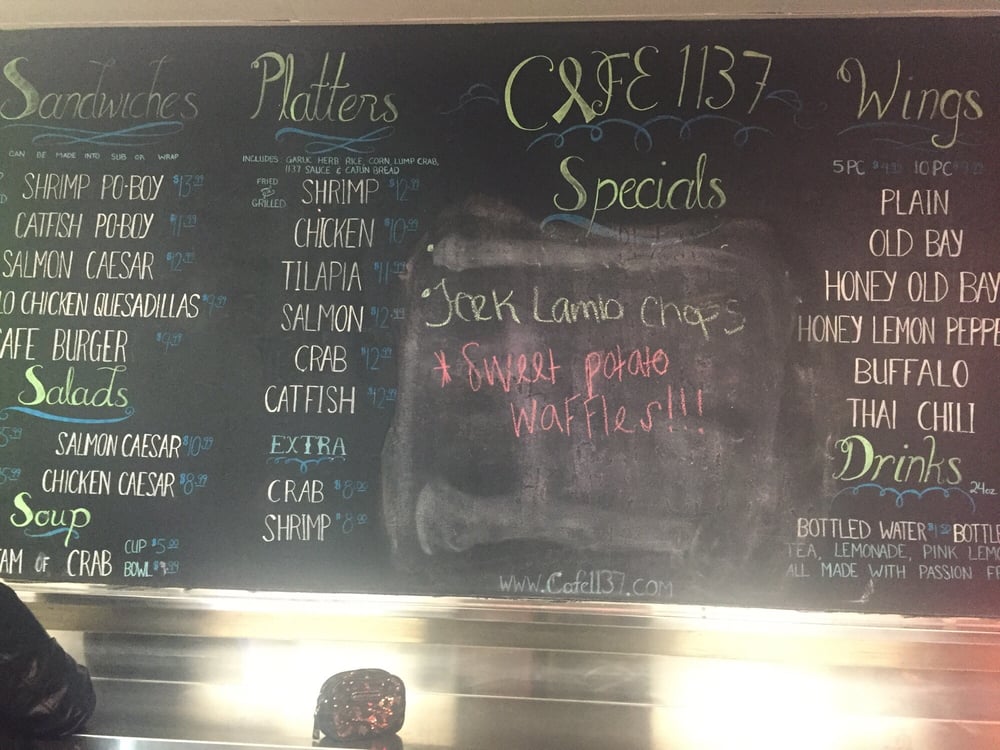 Sandwiches
CAN BE MADE INTO SUB OR WRAP
SHRIMP PO-BOY $13.99
CATFISH PO-BOY $11.99
SALMON CAESAR $12.99
LO CHICKEN QUESADILLAS $9.99
AFE BURGER $9.99
Salads
SALMON CAESAR $10.99
CHICKEN CAESAR $8.99
Soup
AM OF CRAB
CUP $5.00
BOWL
Platters
INCLUDES: GARLIC HERB RICE, CORN, LUMP CRAB,
1137 SAUCE & CAJUN BREAD
FRIED
GRILLED
SHRIMP $12.99
CHICKEN $10.99
TILAPIA $11.99
SALMON $12.99
CRAB $12.99
CATFISH $12.99
EXTRA
CRAB $8.00
SHRIMP $8.00
CAFE 1137
Specials
Jerk Lamb Chops
*Sweet potato
waffles!!!
www.Cafe1137.com
Wings
5 PC $4.99 10 PC $9.99
PLAIN
OLD BAY
HONEY OLD BAY
HONEY LEMON PEPPE
BUFFALO
THAI CHILI
Drinks
24oz
BOTTLED WATER $1.50 BOTTLE
TEA, LEMONADE, PINK LEMO
ALL MADE WITH PASSION FR